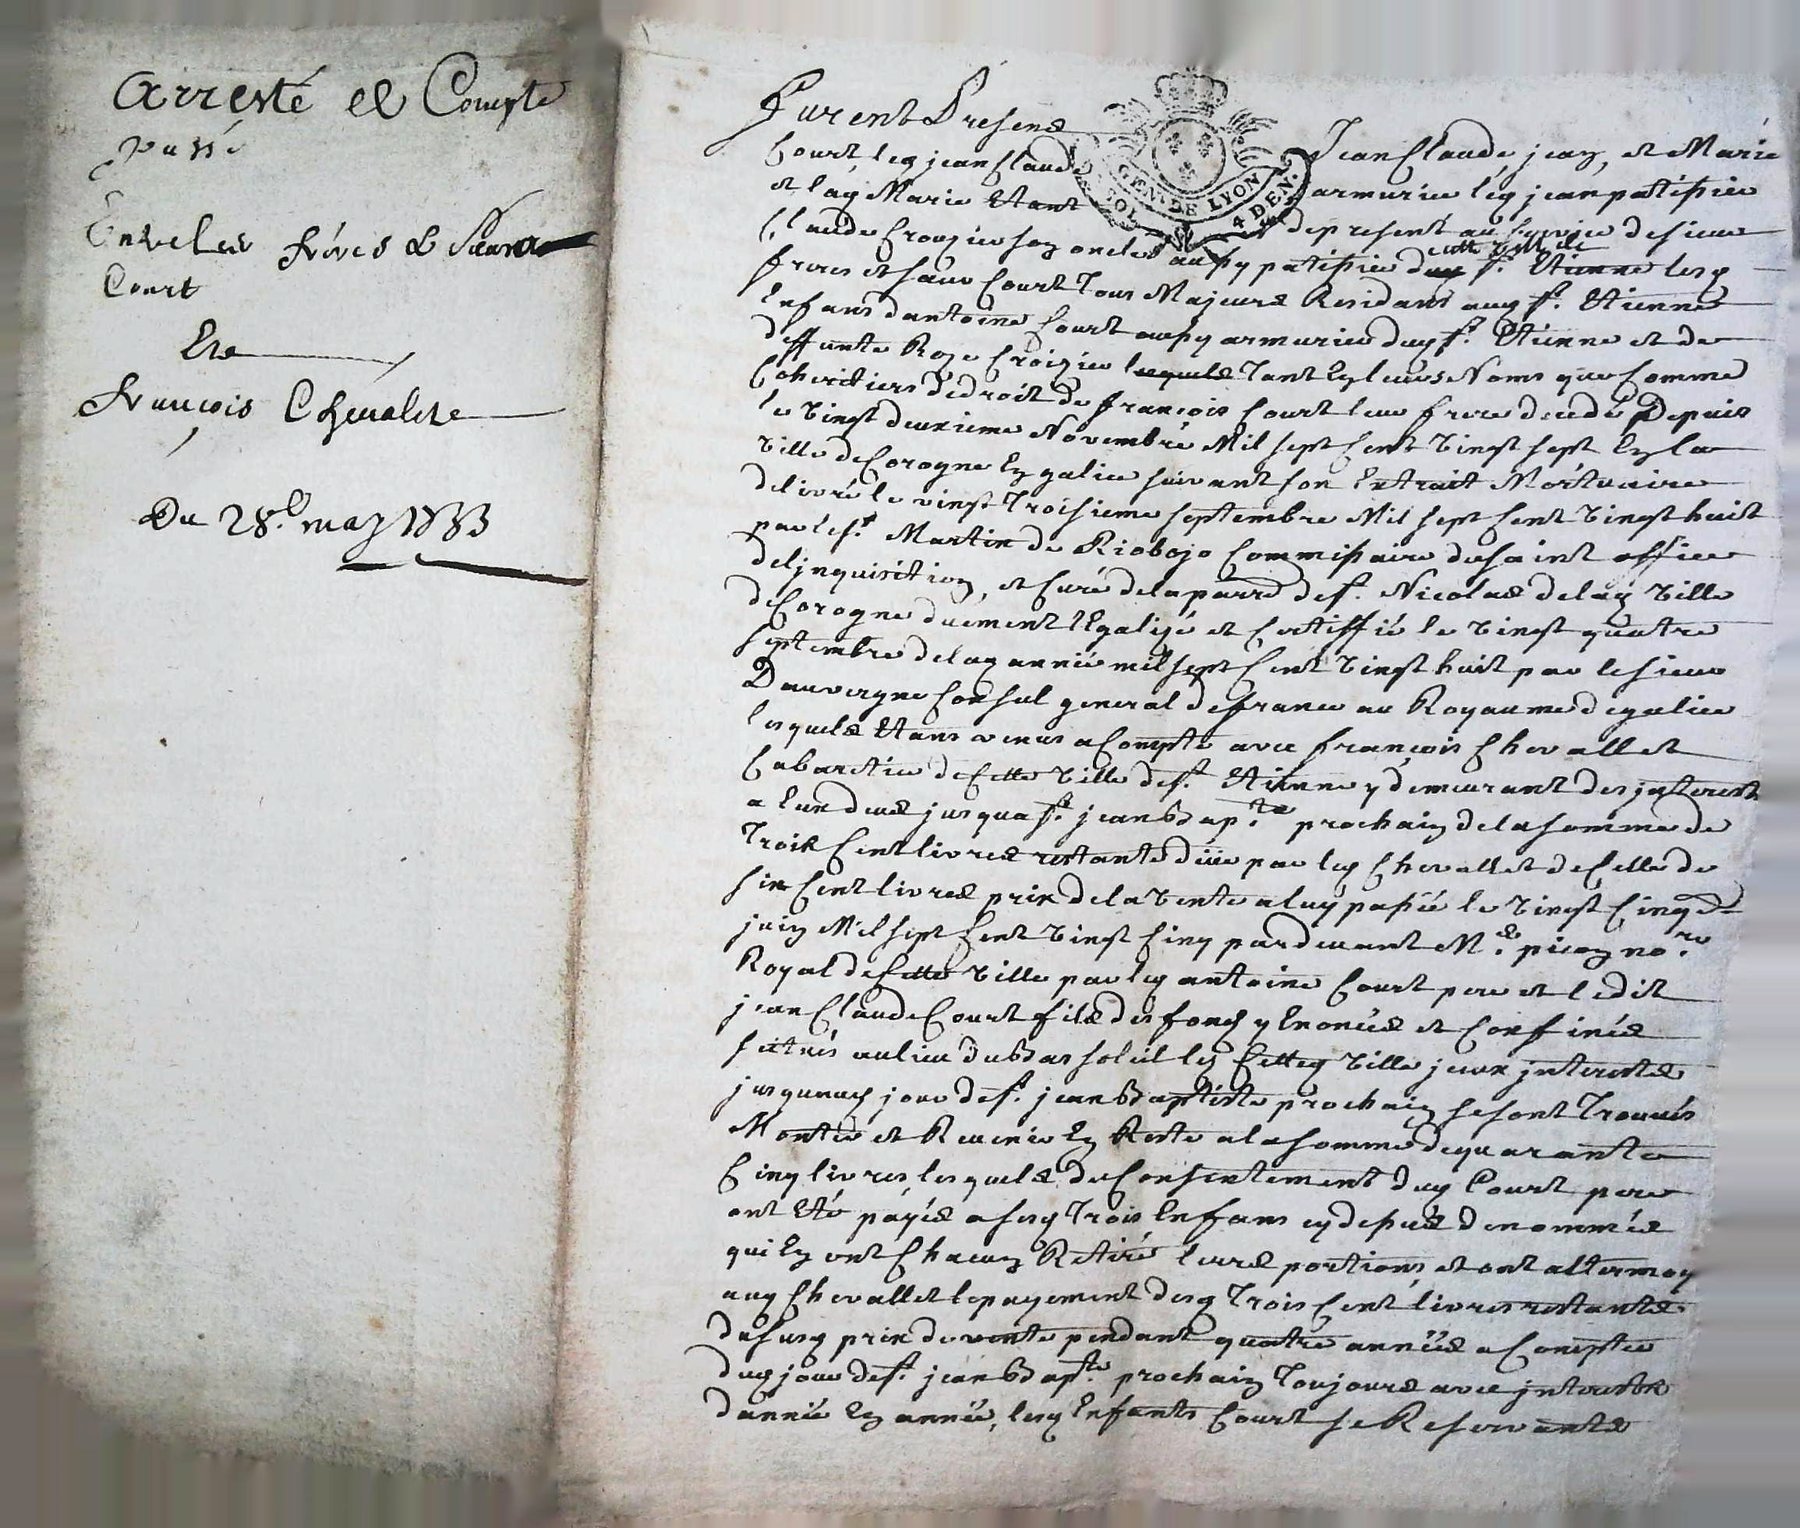 Arresté et Compte
passé
Entre les frères & Sœur
Court
Et
François Chevallet
Du 28.e may 1733
GEN. DE LYON
SOL
4 DEN.
Furent Presens Jean Claude, jean, et Marie
Court, led jean Claude armurier led jean patissier
et lad Marie Etant de present au service de sieur
Claude Crozier son oncle aussy patissier
cette ville de
dud St. Etienne lesd
freres et sœur Court Tous Majeurs Residans aud St. Etienne
Enfans d'antoine Court aussy armurier dud St. Etienne et de
deffunte Roze Croizier lesquels Tant En leurs Noms que Comme
Coheritiers de droit de francois Court leur frere decedé Depuis
le vingt deuxieme Novembre Mil sept Cent vingt sept En la
ville de Corogne En galice suivant son Extrait Mortuaire
delivré le vingt Troisieme septembre Mil sept Cent vingt huit
par le Sr. Martin de Riobojo Commissaire du saint office
de l'jnquisition, et Curé de la parre de St. Nicolas de lad ville
de Corogne duëment légalizé et Certiffié le vingt quatre
septembre de lad année mil sept Cent vingt huit par le sieur
Dauvergne Consul general de france au Royaume de galice
lesquels Etans venus a Compte avec françois Chevallet
Cabaretier de Cette ville de St. Etienne y demeurant des jnterests
a Eux deus jusqua St. jean Bapte. prochain de la somme de
Trois Cent livres restante düe par led Chevallet de Celle de
six Cent livres prix de la vente a luy passée le vingt Cinq
juin Mil sept Cent vingt Cinq pardevant Me. picon nore.
Royal de Cette ville par led antoine Court pere et ledit
jean Claude Court fils des fonds y Enoncés et Confinés
situés au lieu du Bas soleil les Cette ville jceux jnterests
jusquaud jour de St. jean Baptiste prochain se sont Trouvés
Monter et Revenir En Reste a la somme de quarante
Cinq livres, lesquels de Consentement dud Court pere
ont Eté payés a sesd Trois Enfans cy dessus denommés
qui En ont Chacun Retiré leurs portions, et ont attermoyé
aud Chevallet le payement desd Trois Cent livres restantes
dususd prix de vente pendant quatre années a Compter
dud jour de St. jean Bapte. prochain Toujours avec jnterests
d'année En année, lesd Enfants Court se Reservants